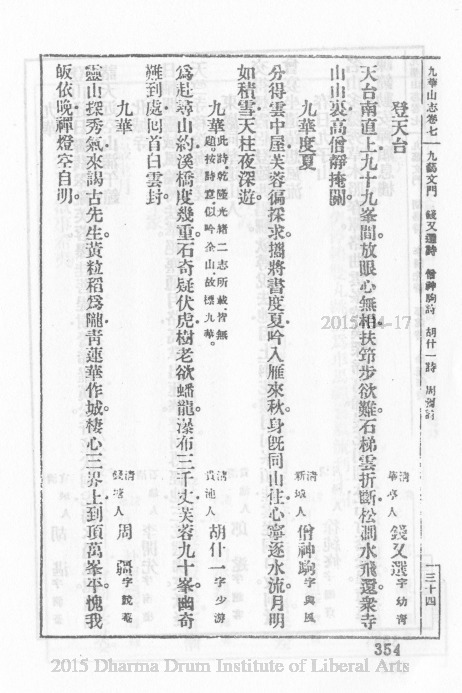 九華山志卷七 九藝文門 錢又選詩 僧神駒詩 胡什一詩 周疆詩 一三十四
登天台 清華亭人 錢又選字幼青
天台南直上九十九峯間。放眼心無相。扶筇步欲難。石梯雲折斷。松澗水飛還。衆寺
山山裏。高僧靜掩關。
九華度夏 清新城人 僧神駒字與風
分得雲中屋。芙蓉徧採求。攜將書度夏。吟入雁來秋。身旣同山住。心寧逐水流。月明
如積雪。天柱夜深遊。
九華 此詩乾隆光緒二志所載。皆無題。按詩意。似吟全山。故標九華。 清貴池人 胡什一字少游
爲起尋山約。溪橋度幾重。石奇疑伏虎。樹老欲蟠龍。瀑布三千丈。芙蓉九十峯。幽奇
難到處。回首白雲封。
九華 清 周疆字說菴
靈山探秀氣。來謁古先生。黃粒稻爲隴。青蓮華作城。棲心三界上。到頂萬峯平。愧我
皈依晚。禪燈空自明。
354
2015-04-17
2015 Dharma Drum Institute of Liberal Arts